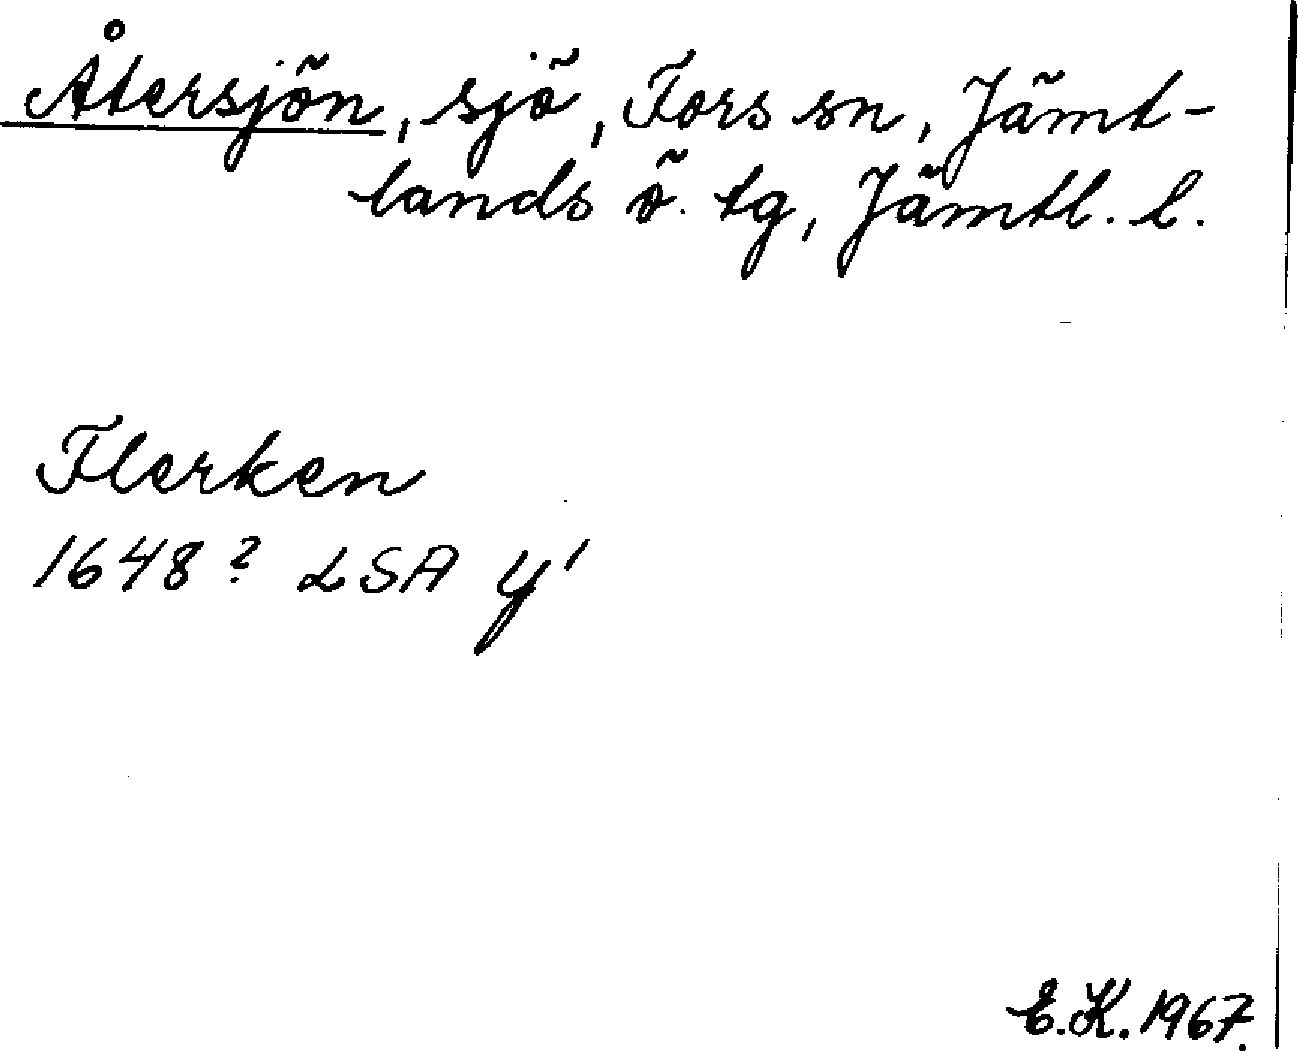 Återsjön, sjö, Fors sn, Jämt-
lands ö. tg, Jämtl. l.
Flerken
1648? LSA y'
E.K. 1967.